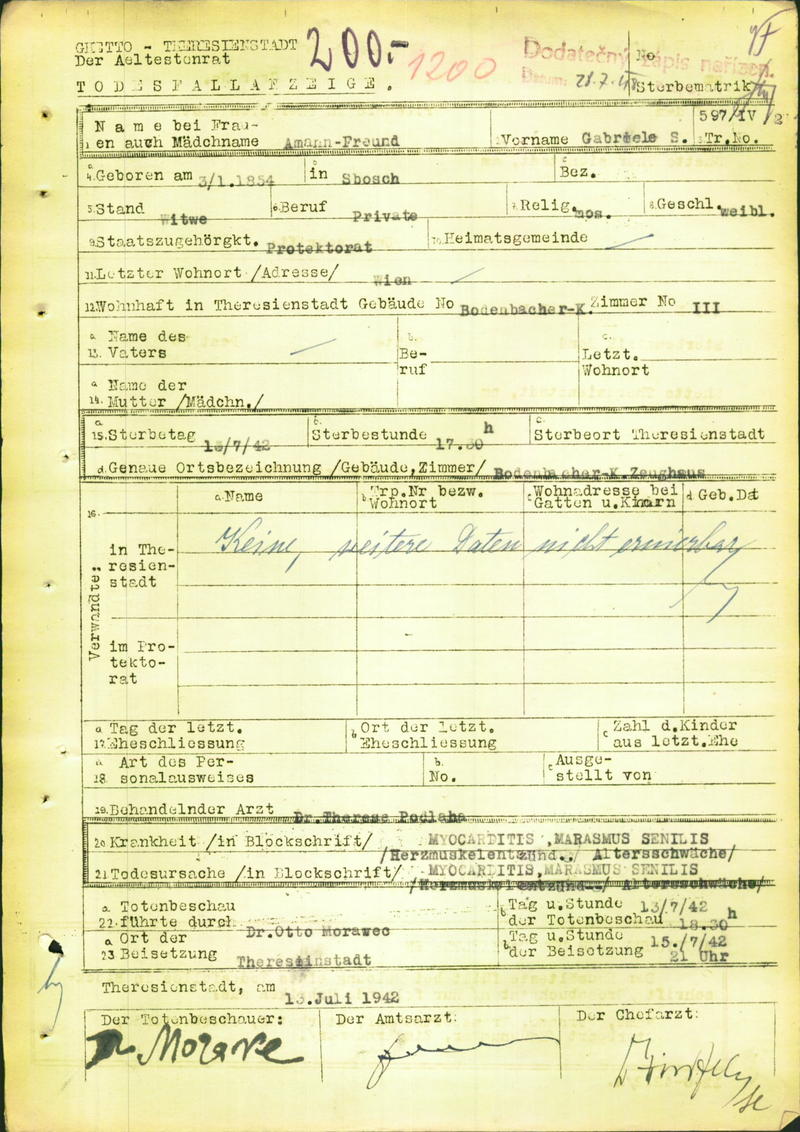 GHETTO - THERESIENSTADT
Der Aeltestenrat
TODESFALLANZEIGE.
200.-
1200
Dodatečný zápis nařízen.
Datum:
No
Sterbematrik
Name bei Frau-
en auch Mädchname Amann-Freund
Vorname Gabriele S.
597/IV
Tr.No.
a 4. Geboren am 3/1.1854
b in Sbosch
c Bez.
5. Stand Witwe
6. Beruf Private
7. Relig. mos.
8. Geschl. weibl.
9. Staatszugehörgkt. Protektorat
10. Heimatsgemeinde
11. Letzter Wohnort /Adresse/ Wien
12. Wohnhaft in Theresienstadt Gebäude No Bodenbacher-K. Zimmer No III
a Name des
13. Vaters
b. Be-
ruf
c. Letzt.
Wohnort
a Name der
14. Mutter /Mädchn./
a
15. Sterbetag 13/7/42
b. Sterbestunde 17.30 h
c. Sterbeort Theresienstadt
d. Genaue Ortsbezeichnung /Gebäude,Zimmer/ Bodenbacher-K.Zeughaus
16.
a. Name
b Trp.Nr bezw.
Wohnort
c Wohnadresse bei
Gatten u.Kindrn
d Geb.Dat
Verwandte:
in The-
resien-
stadt
Keine, weitere Daten nicht eruierbar
im Pro-
tekto-
rat
a Tag der letzt.
17. Eheschliessung
b Ort der letzt.
Eheschliessung
c Zahl d.Kinder
aus letzt.Ehe
a Art des Per-
18. sonalausweises
b. No.
c Ausge-
stellt von
19. Behandelnder Arzt Dr.Therese Podlaha
20. Krankheit /in Blockschrift/ MYOCARDITIS ,MARASMUS SENILIS
/Herzmuskelentzünd../ Altersschwäche/
21. Todesursache /in Blockschrift/ MYOCARDITIS,MARASMUS SENILIS
/Herzmuskelentzünd../ Altersschwäche/
a Totenbeschau
22. führte durch Dr.Otto Morawec
b Tag u.Stunde 13/7/42
der Totenbeschau 18.30 h
a Ort der
23 Beisetzung Theresinstadt
b Tag u.Stunde 15./7/42
der Beisetzung 21 Uhr
Theresienstadt, am 13.Juli 1942
Der Totenbeschauer:
Der Amtsarzt:
Der Chefarzt: